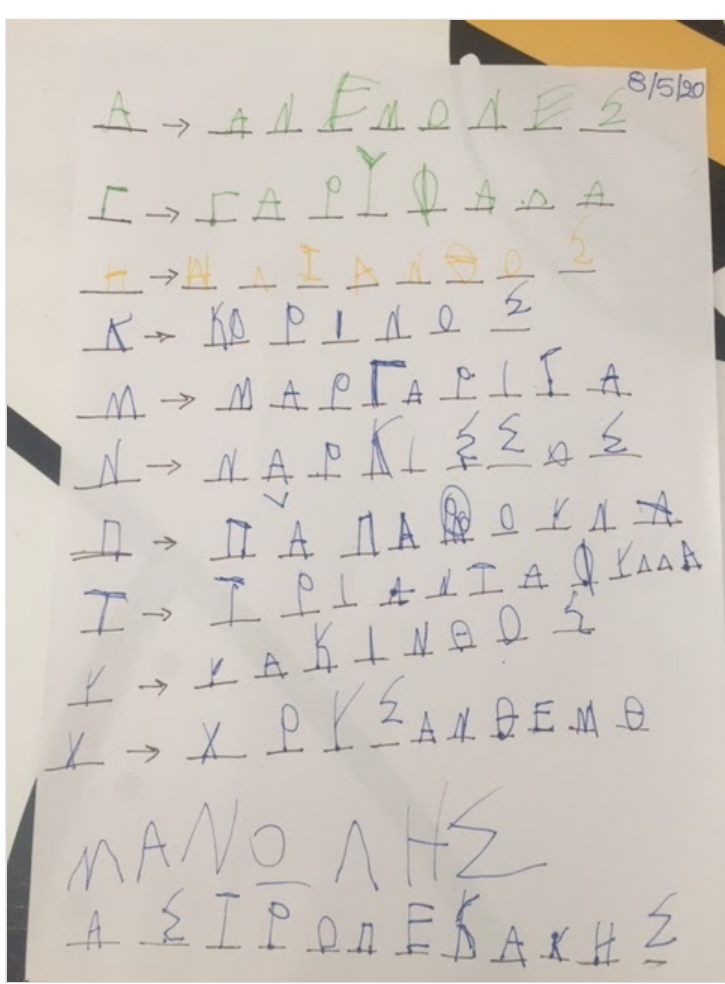 8/5/20
Α → ΑΝΕΜΟΝΕΣ
Γ → ΓΑΡΥΦΑΛΑ
Η → ΗΛΙΑΝΘΟΣ
Κ → ΚΟΡΙΝΟΣ
Μ → ΜΑΡΓΑΡΙΤΑ
Ν → ΝΑΡΚΙΣΣΟΣ
Π → ΠΑΠΑΡΟΥΝΑ
Τ → ΤΡΙΑΝΤΑΦΥΛΛΑ
Υ → ΥΑΚΙΝΘΟΣ
Χ → ΧΡΥΣΑΝΘΕΜΟ
ΜΑΝΟΛΗΣ